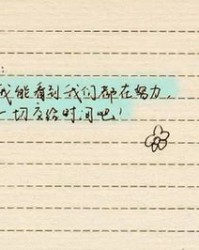 我能看到我们都在努力，
一切交给时间吧！